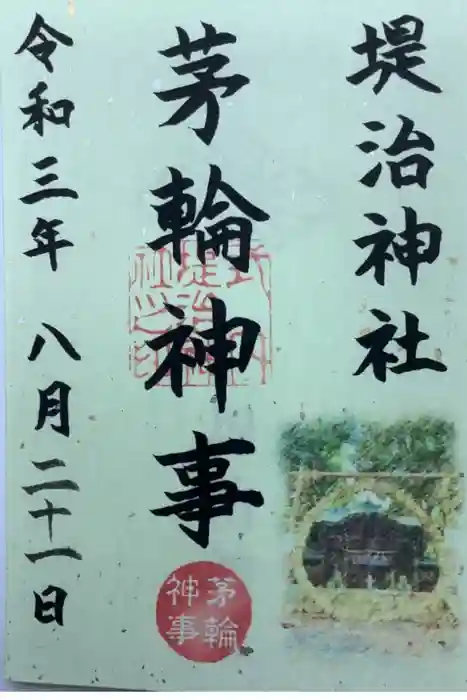 堤治神社
茅輪神事
茅輪
神事
令和三年 八月二十一日